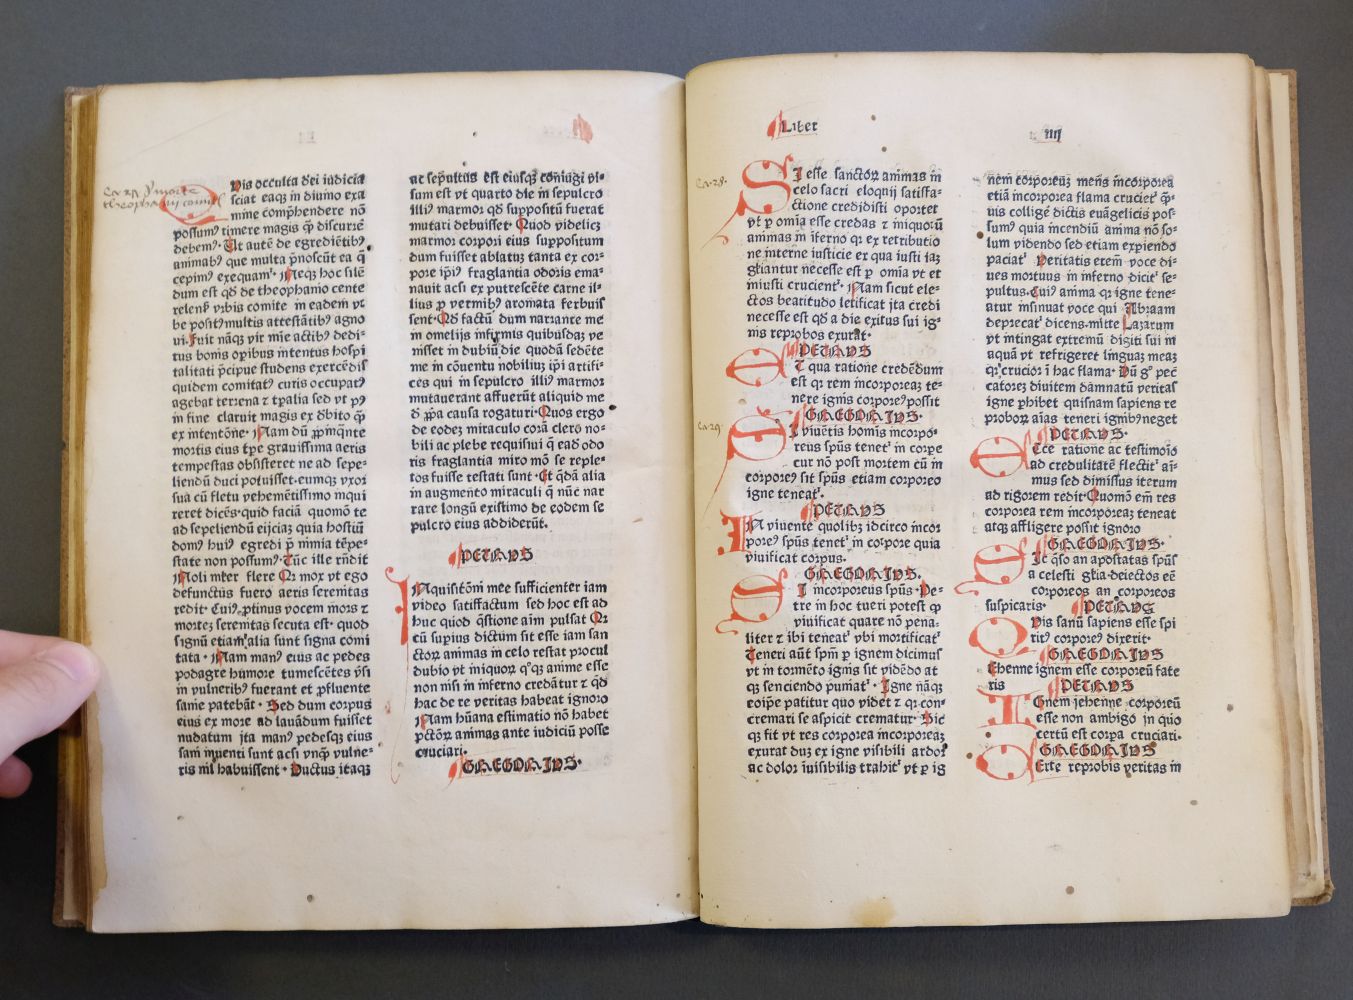 Liber
iiij
Ca. 28.
Ca. 29.
Quis occulta dei iudicia
sciat eaqꝫ in diuino exa
mine comp̄hendere nō
possumꝰ timere magis q̄ discutē
debemꝰ. Ut autē de egrediētibꝰ
animabꝰ que multa p̄noscūt ea q̄
cepimꝰ exequamᷣ. Neqꝫ hoc silē
dum est qd̄ de theophanio cente
relenẜ vrbis comite in eadem vr
be positꝰ multis attestātibꝰ agno
ui. Fuit nāqꝫ vir mīe actibꝰ dedi⸗
tus bonis opibus intentus hospi
talitati p̄cipue studens exercēdis
quidem comitatꝰ curis occupatꝰ
agebat terrena ⁊ tꝑalia sed vt pꝰ
in fine claruit magis ex d̓bito q̄
ex intentōne. Nam dū ꝓpinq̄nte
mortis eius tꝑe grauissima aeris
tempestas obsisteret ne ad sepe⸗
liendū duci potuisset eumqꝫ vxor
sua cū fletu vehemētissimo inqui
reret dicēs. quid faciā quomō te
ad sepeliendū eijciaꝫ quia hostiū
domꝰ huiꝰ egredi p̄ nimia tēpe⸗
state non possumꝰ. Tūc ille rn̄dit
Noli mr̄er flere Qꝛ mox vt ego
defunctus fuero aeris serenitas
redit. Cuiꝰ ꝓtinus vocem mors ⁊
morteꝫ serenitas secuta est. quod
signū etiam alia sunt signa comi
tata. Nam manꝰ eius ac pedes
podagre humore tumescētes v̓si
in vulneribꝰ fuerant et ꝓfluente
sanie patebāt. Sed dum corpus
eius ex more ad lauādum fuisset
nudatum ita manꝰ pedesqꝫ eius
sani inuenti sunt acsi vnq̄ vulne⸗
ris nil habuissent. Ductus itaqꝫ
ac sepultus est eiusqꝫ coniugi vi⸗
sum est vt quarto die in sepulcro
illiꝰ marmor qd̄ suppositū fuerat
mutari debuisset. Quod videlicꝫ
marmor corpori eius suppositum
dum fuisset ablatuꝫ tanta ex cor⸗
pore ip̄iꝰ fraglantia odoris ema⸗
nauit acsi ex putrescēte carne il⸗
lius ꝓ vermibꝰ aromata ferbuis
sent. Qd̄ factū dum narrante me
in omelijs infirmis quibusdaꝫ ve
nisset in dubiū die quodā sedēte
me in cōuentu nobiliuꝫ ip̄i artifi⸗
ces qui in sepulcro illiꝰ marmor
mutauerant affuerūt aliquid me
d̓ ꝓpa causa rogaturi. Quos ergo
de eodeꝫ miraculo corā clero no⸗
bili ac plebe requisiui q̄ ead̓ odo
ris fraglantia miro mō se reple⸗
tos fuisse testati sunt. Et qd̄ā alia
in augmento miraculi q̄ nūc nar
rare longū existimo de eodem se
pulcro eius addiderūt.
PETRVS
INquisitōni mee sufficienter iam
video satisfactum sed hoc est ad
huc quod q̄stione aim pulsat Qꝛ
cū supius dictum sit esse iam san
ctoꝝ animas in celo restat procul
dubio vt iniquoꝝ qͦqꝫ anime esse
non nisi in inferno credātur ⁊ qd̄
hac de re veritas habeat ignoro
Nam hūana estimatio nō habet
pctōꝝ animas ante iudiciū posse
cruciari.
GREGORIVS.
SI esse sanctoꝝ animas in
celo sacri eloquij satisfa⸗
ctione credidisti oportet
vt ꝑ omīa esse credas ⁊ iniquoꝝ
animas in īferno qꝛ ex retributio
ne interne iusticie ex qua iusti iaꝫ
gl̄iantur necesse est ꝑ omīa vt et
iniusti crucientᷣ. Nam sicut ele⸗
ctos beatitudo letificat ita credi
necesse est qd̄ a die exitus sui ig⸗
nis reprobos exurat.
PETRVS
ET qua ratione credēdum
est qꝛ rem incorporeaꝫ te⸗
nere ignis corporeꝰ possit
GREGORIVS.
SI viuētis homīs incorpo⸗
reus spūs tenetᷣ in corpe
cur nō post mortem cū in
corporeꝰ sit spūs etiam corporeo
igne teneatᷣ.
PETRVS
IN viuente quolibꝫ idcirco incor
poreꝰ spūs tenetᷣ in corpore quia
viuificat corpus.
GREGORIVS.
SI incorporeus spūs Pe⸗
tre in hoc tueri potest q̄
viuificat quare nō pena⸗
liter ⁊ ibi teneatᷣ vbi mortificatᷣ
Teneri aūt spm̄ ꝑ ignem dicimus
vt in tormēto ignis sit videdo at
qꝫ senciendo puniatᷣ. Igne nāqꝫ
eoipe patitur quo videt ⁊ qꝛ con⸗
cremari se aspicit crematur. Sic
qꝫ fit vt res corporea incorporeaꝫ
exurat duꝫ ex igne visibili ardor
ac dolor īuisibilis trahitᷣ vt ꝑ ig
nem corporeuꝫ mens incorporea
etiā incorporea flama crucietᷣ q̄⸗
uis colligē dictis euāgelicis pos⸗
sumꝰ quia incendiū anima nō so⸗
lum videndo sed etiam expiendo
paciatᷣ. Veritatis erem̄ voce di⸗
ues mortuus in inferno dicitᷣ se⸗
pultus. Cuiꝰ anima qꝛ igne tene⸗
atur insinuat voce qui Abraam
deprecatᷣ dicens. mitte Lazarum
vt intingat extremū digiti sui in
aquā vt refrigeret linguaꝫ meaꝫ
qꝛ crucior ī hac flama. Dū gͦ pec
catoreꝫ diuitem damnatū veritas
igne ꝑhibet quisnam sapiens re
proboꝝ aīas teneri ignibꝰ neget
PETRVS.
ECce ratione ac testimoīo
ad credulitatē flectitᷣ aī⸗
mus sed dimissus iterum
ad rigorem redit. Quomō em̄ res
corporea rem incorporeaꝫ teneat
atqꝫ affligere possit ignoro
GREGORIVS.
DIc q̄so an apostatas spūs
a celesti gl̄ia deiectos eē
corporeos an corporeos
suspicaris.
PETRVS
QVis sanū sapiens esse spi
ritꝰ corporeꝰ dixerit.
GREGORIVS
Iehenne ignem esse corporeū fate
ris
PETRVS
IGnem jehenne corporeū
esse non ambigo in quo
certū est corpa cruciari.
GREGORIVS
CErte reprobis veritas in